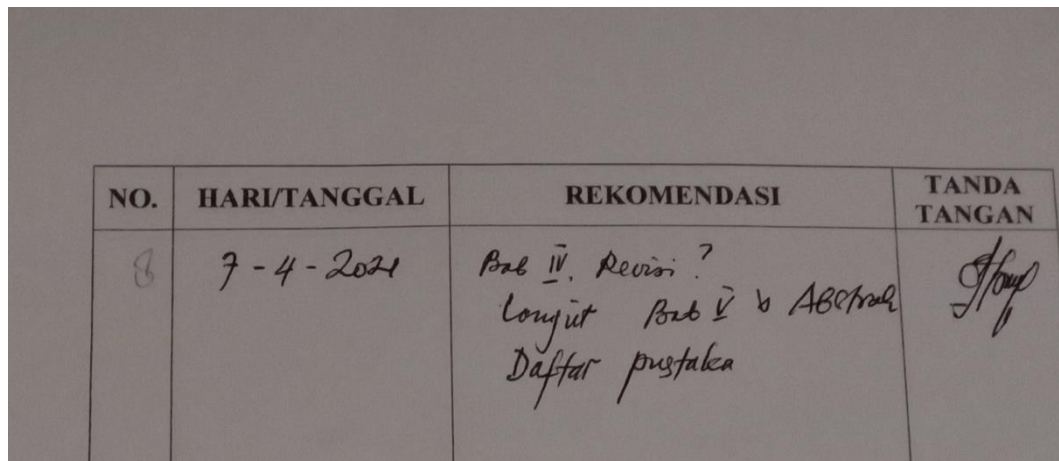 NO. HARI/TANGGAL REKOMENDASI TANDA TANGAN
8 7-4-2021 Bab IV. Revisi ?
Lanjut Bab V & Abstrak
Daftar pustaka